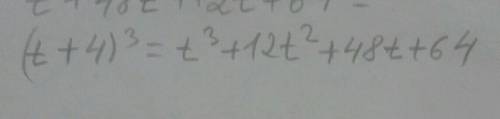 (t+4)³ = t³+12t²+48t+64